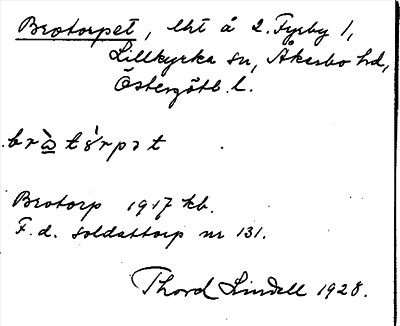 Brotorpet, lht å 2. Fyrby 1,
Lillkyrka sn, Åkerbo hd,
Östergötl. l.
brò̲tórpət
Brotorp 1917 kb.
F. d. soldattorp nr 131.
Thord Lindell 1928.